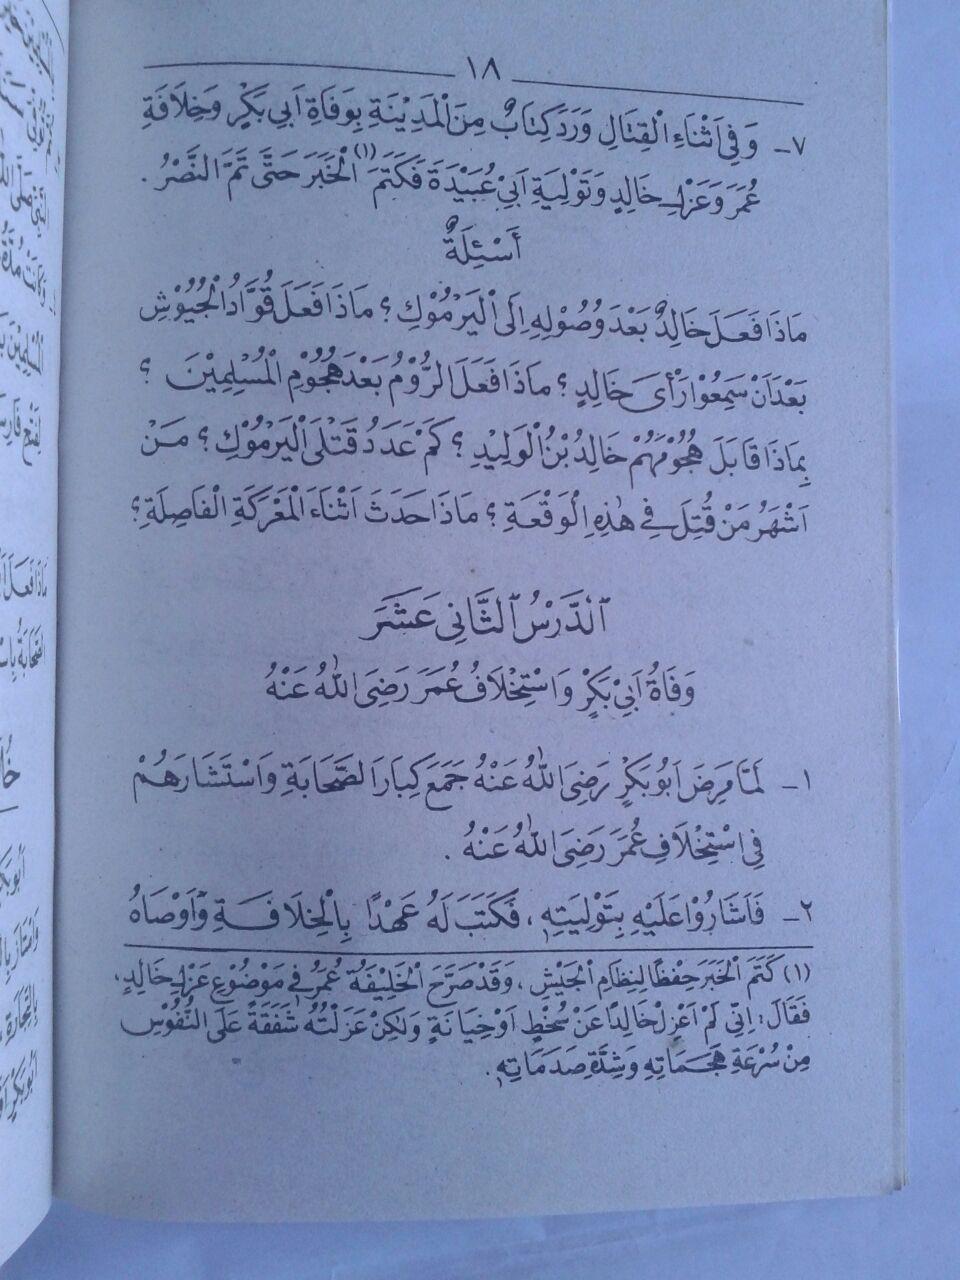 ١٨
٧- وَفِي اَثْنَاءِ الْقِتَالِ وَرَدَ كِتَابٌ مِنَ الْمَدِيْنَةِ بِوَفَاةِ اَبِي بَكْرٍ وَخِلَافَةِ
عُمَرَ وَعَزْلِ خَالِدٍ وَتَوْلِيَةِ اَبِيْ عُبَيْدَةَ فَكَتَمَ (١) الْخَبَرَ حَتَّى تَمَّ النَّصْرُ .
أَسْئِلَةٌ
مَاذَا فَعَلَ خَالِدٌ بَعْدَ وُصُوْلِهِ اِلَى الْيَرْمُوْكِ ؟ مَاذَا فَعَلَ قُوَّادُ الْجُيُوْشِ
بَعْدَ اَنْ سَمِعُوْا رَأْىَ خَالِدٍ ؟ مَاذَا فَعَلَ الرُّوْمُ بَعْدَ هُجُوْمِ الْمُسْلِمِيْنَ ؟
بِمَاذَا قَابَلَ هُجُوْمَهُمْ خَالِدُ بْنُ الْوَلِيْدِ ؟ كَمْ عَدَدُ قَتْلَى الْيَرْمُوْكِ ؟ مَنْ
اَشْهَرُ مَنْ قُتِلَ فِي هٰذِهِ الْوَقْعَةِ ؟ مَاذَا حَدَثَ اَثْنَاءَ الْمَعْرَكَةِ الْفَاصِلَةِ ؟
اَلدَّرْسُ الثَّانِي عَشَرَ
وَفَاةُ اَبِيْ بَكْرٍ وَاسْتِخْلَافُ عُمَرَ رَضِيَ اللّٰهُ عَنْهُ
١- لَمَّا مَرِضَ اَبُو بَكْرٍ رَضِيَ اللّٰهُ عَنْهُ جَمَعَ كِبَارَ الصَّحَابَةِ وَاسْتَشَارَهُمْ
فِي اسْتِخْلَافِ عُمَرَ رَضِيَ اللّٰهُ عَنْهُ .
٢- فَاَشَارُوْا عَلَيْهِ بِتَوْلِيَتِهِ ، فَكَتَبَ لَهُ عَهْدًا بِالْخِلَافَةِ وَاَوْصَاهُ
(١) كَتَمَ الْخَبَرَ حِفْظًا لِنِظَامِ الْجَيْشِ ، وَقَدْ صَرَّحَ الْخَلِيْفَةُ عُمَرُ فِي مَوْضُوْعِ عَزْلِ خَالِدٍ،
فَقَالَ : اِنِّي لَمْ اَعْزِلْ خَالِدًا عَنْ سُخْطٍ اَوْ خِيَانَةٍ وَلٰكِنْ عَزَلْتُهُ شَفَقَةً عَلَى النُّفُوْسِ
مِنْ سُرْعَةِ هَجَمَاتِهِ وَشِدَّةِ صَدَمَاتِهِ .